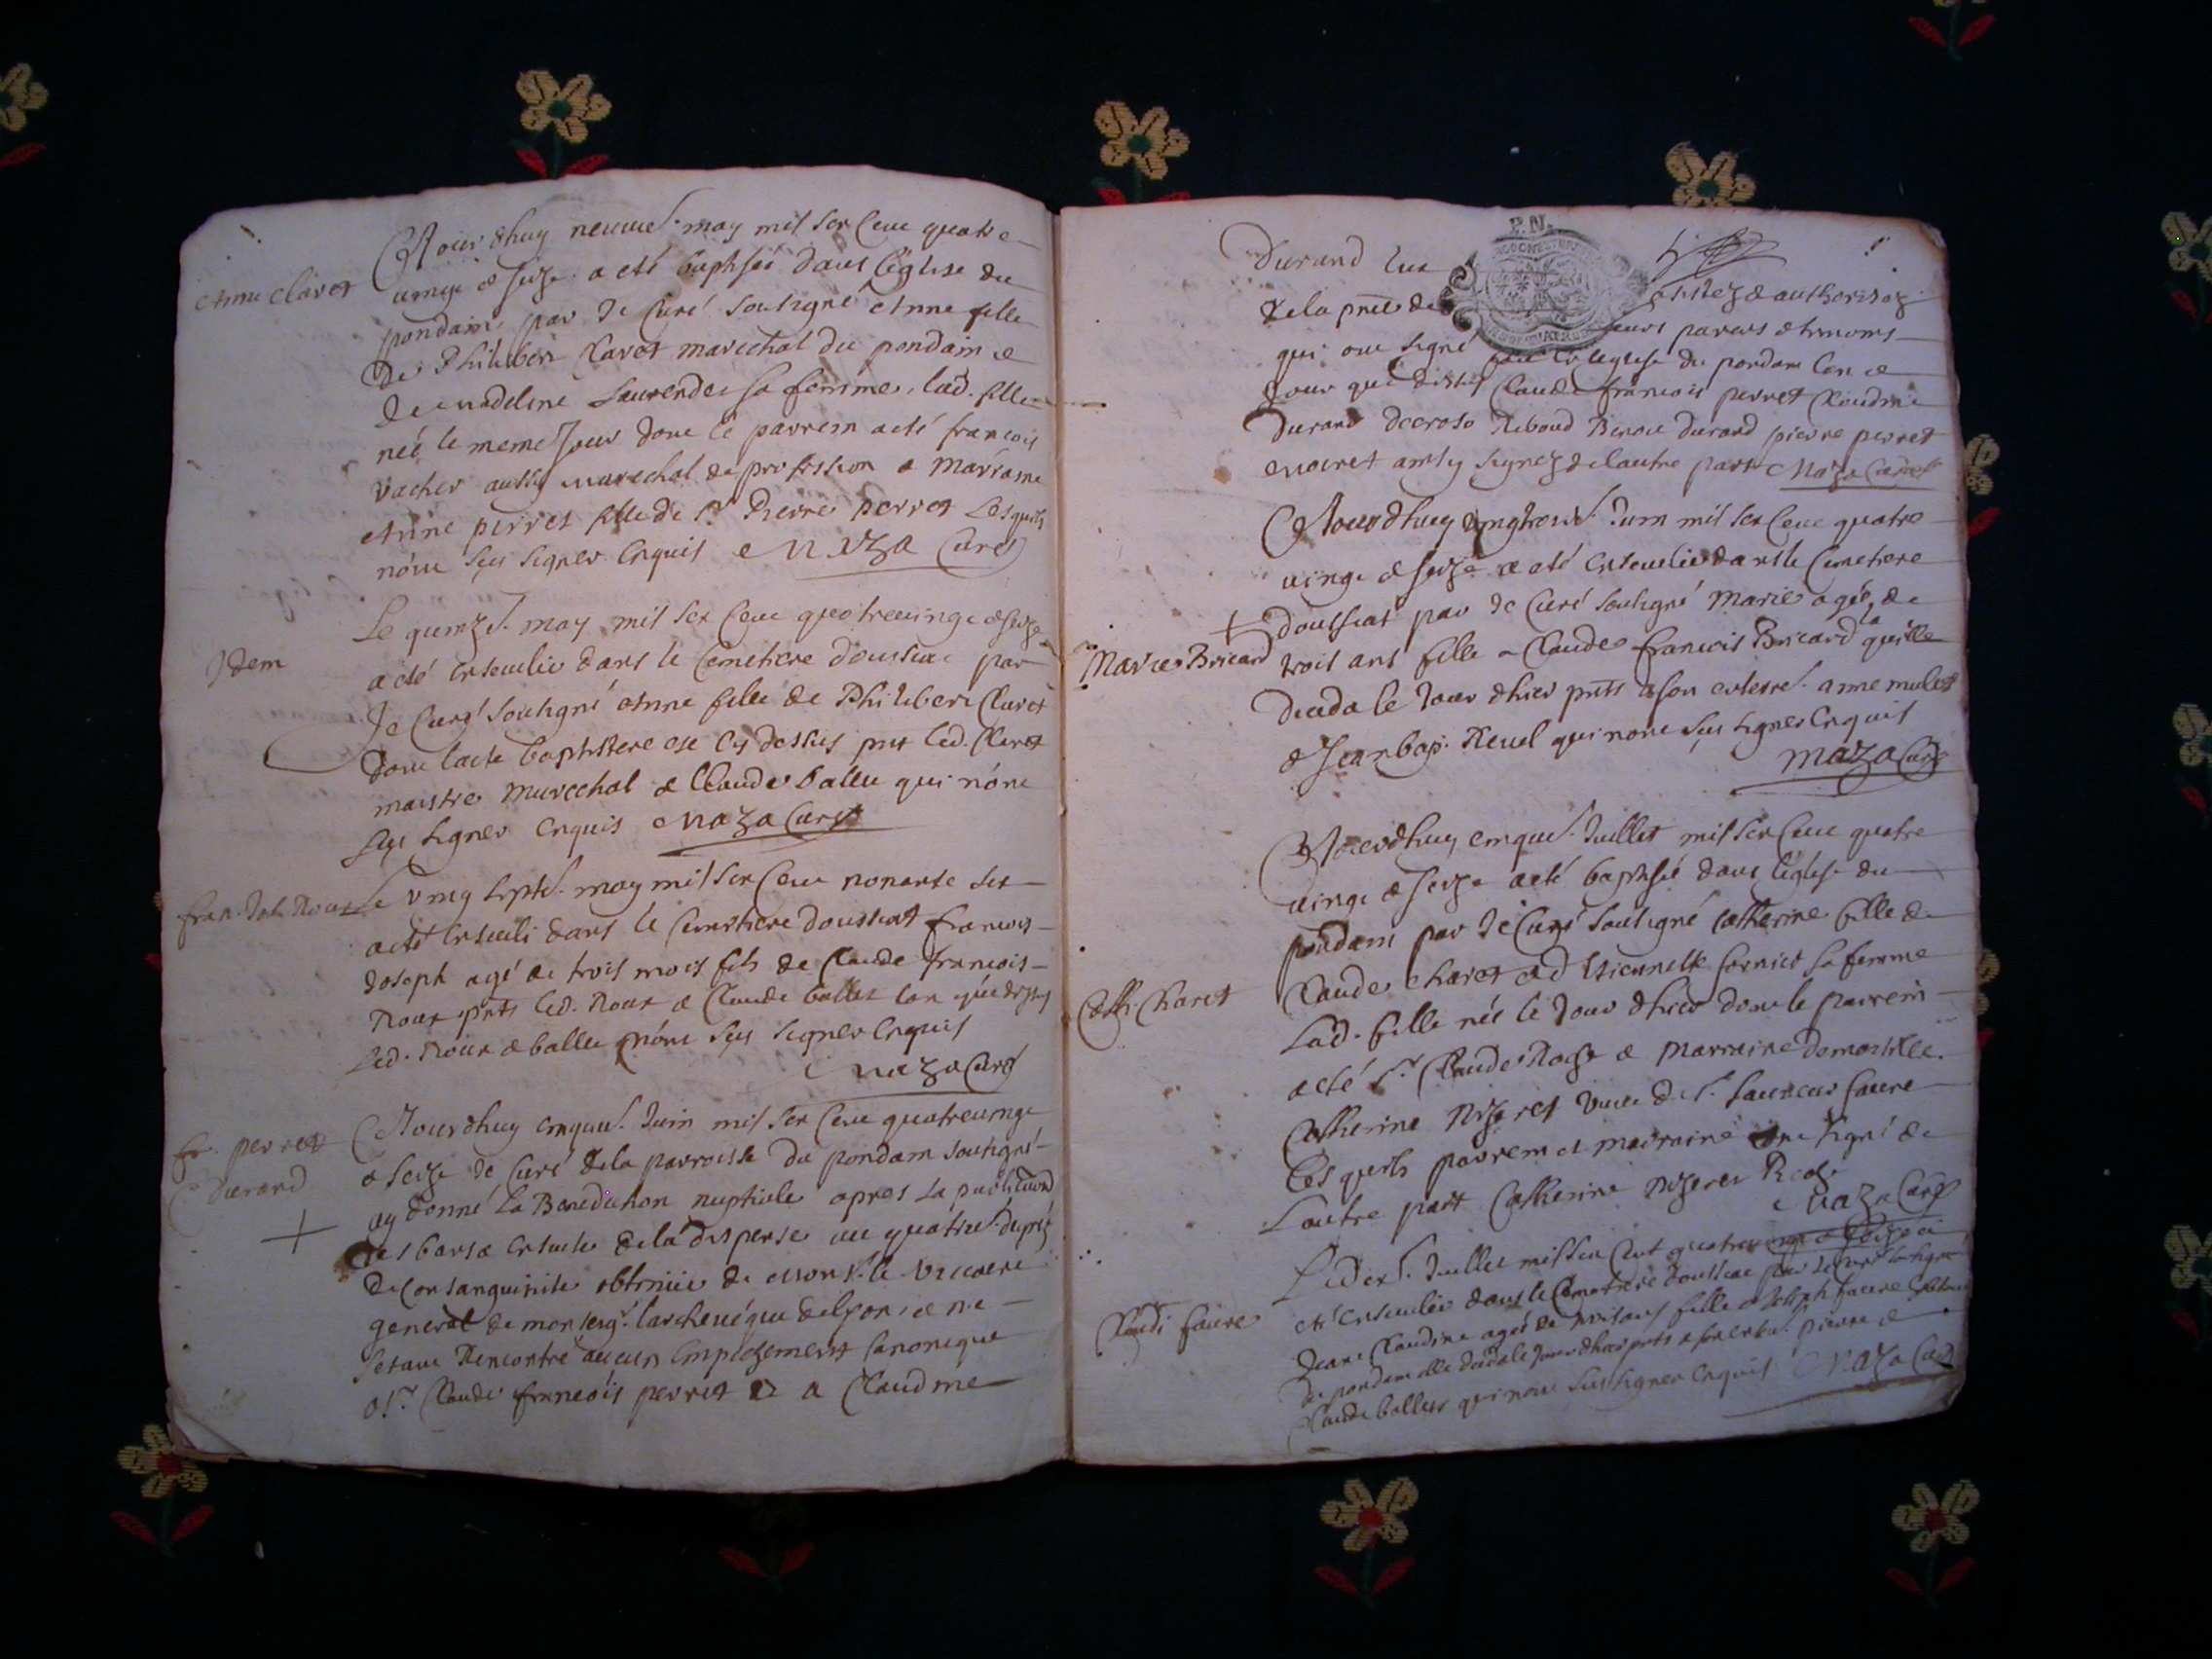 Anne Claret
Aujourdhuy neuvie. may mil six cent quatre
vingt & seize a eté baptisée dans l'église du
pondain par Je Curé soubsigné Anne fille
De Philibert Claret marechal du pondain &
De madeleine Laurendet sa femme, lad. fille
née le meme Jour dont le parrein a eté francois
Vacher aussy marechal de profession & Marraine
Anne perret fille de Sr. Pierre perret Lesquels
n'ont sçu signer Enquis Maza Curé
Idem
Le quinze. may mil six cent quatrevingt & seize
a eté Ensevelie dans le Cemetiere doussiat par
Je Curé soubsigné Anne fille de Philibert Claret
Dont l'acte baptistere est cy dessus pnt led. Claret
maistre marechal & Claude ballet qui n'ont
sçu signer Enquis Maza Curé
fran. Jos. Roux
Le vingt septe. may mil six cent nonante six
a eté Enseveli dans le Cemetiere doussiat francois
Joseph agé de trois mois fils de Claude francois
Roux pnts led. Roux & Claude ballet l'an que dessus
Led. Roux & ballet n'ont sçu signer Enquis
Maza Curé
fr. perret
C. Durand
Aujourdhuy cinquie. Juin mil six cent quatrevingt
& seize Je Curé de la parroisse du pondain soubsigné
ay donné La Benediction nuptiale apres la publication
des bans & Ensuite de la dispense au quatrie. degré
De consanguinité obtenue de Monsr. le Viccaire
general de monseigr. l'archevéque de Lyon & ne
s'etant Rencontré aucun Empechement Canonique
a Sr. Claude francois perret & a Claudine
Durand
de la pnce de assistez & authorisez
qui ont signé leurs parens & temoins
dans l'eglise du pondain l'an &
Jour que dessus Claude francois perret Claudine
Durand Decroso Reboud Benoit Durand pierre perret
Moiret ainsy signez de l'autre part Maza Curé
Marie Bricard
Aujourdhuy vingtroise. Juin mil six cent quatre
vingt & seize a eté Ensevelie dans le Cimetiere
doussiat par Je Curé soubsigné Marie agée de
trois ans fille a Claude francois Bricard la quelle
Deceda le Jour d'hier pnts a son enterre. anne mulet
& Jean bap. Revel qui n'ont sçu signer Enquis
Maza Curé
Cath. Charet
Aujourdhuy cinquie. Juillet mil six cent quatre
vingt & seize a eté baptisée dans l'église du
pondain par Je Curé soubsigné Catherine fille de
Claude Charet & d'Estiennette fornier sa femme
Lad. fille née le Jour d'hier dont le parrein
a eté Sr. Claude & Marraine Demoiselle
Catherine Nizeret veuve de Sr. Laurent faure
Lesquels parrein et marraine ont signé de
L'autre part Catherine Nizeret
Maza Curé
Claudi. faure
Le dixe. Juillet mil six cent quatre vingt & seize a
eté Ensevelie dans le Cemetiere doussiat par Le Curé soubsigné
Jeane Claudine agée de trois ans fille a Joseph faure
du pondain elle deceda le Jour d'hier pnts a son enter. pierre &
Claude ballet qui n'ont sçu signer Enquis Maza Curé